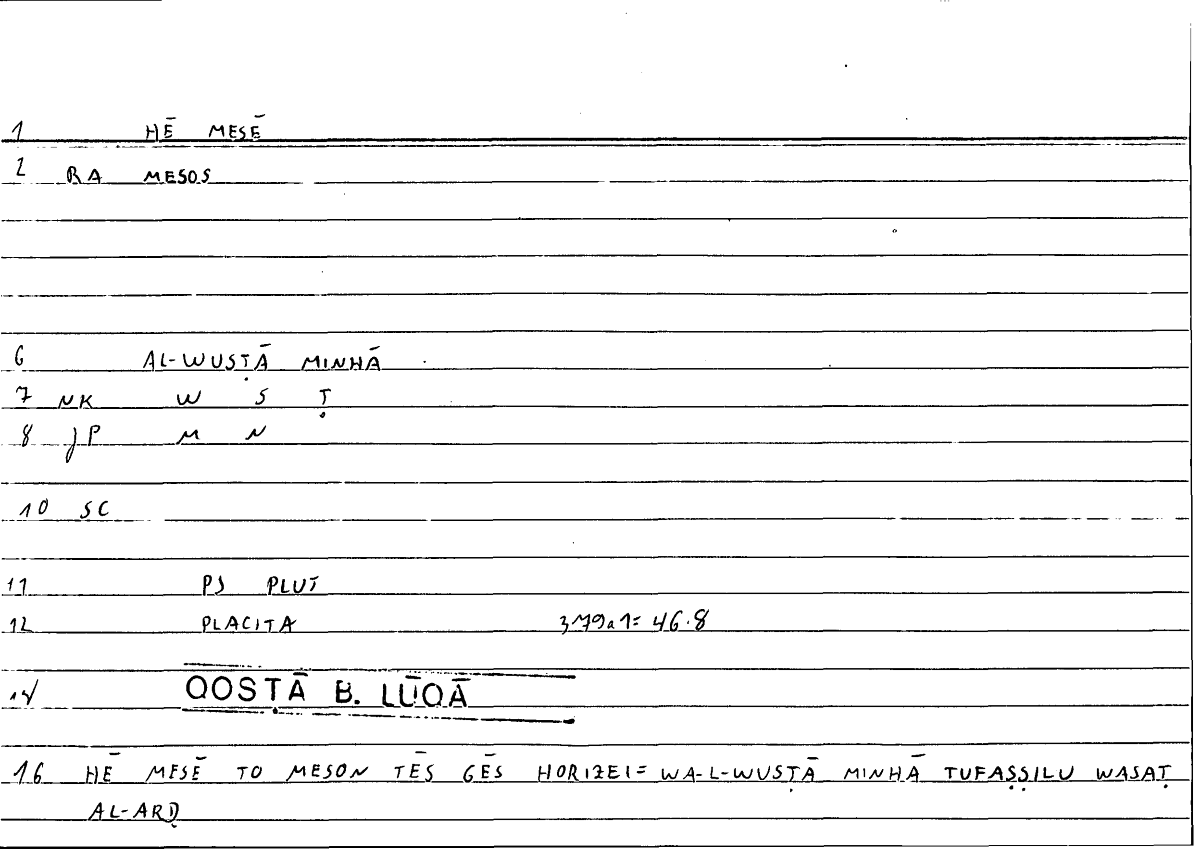 1 HĒ MESĒ
2 RA MESOS
6 AL-WUSṬĀ MINHĀ
7 NK W S Ṭ
8 JP M N
10 SC
11 PS PLUT
12 PLACITA 379a1= 46.8
14 QOSṬĀ B. LŪQĀ
16 HĒ MESĒ TO MESON TĒS GĒS HORIZEI= WA-L-WUSṬĀ MINHĀ TUFAṢṢILU WASAṬ
AL-ARḌ